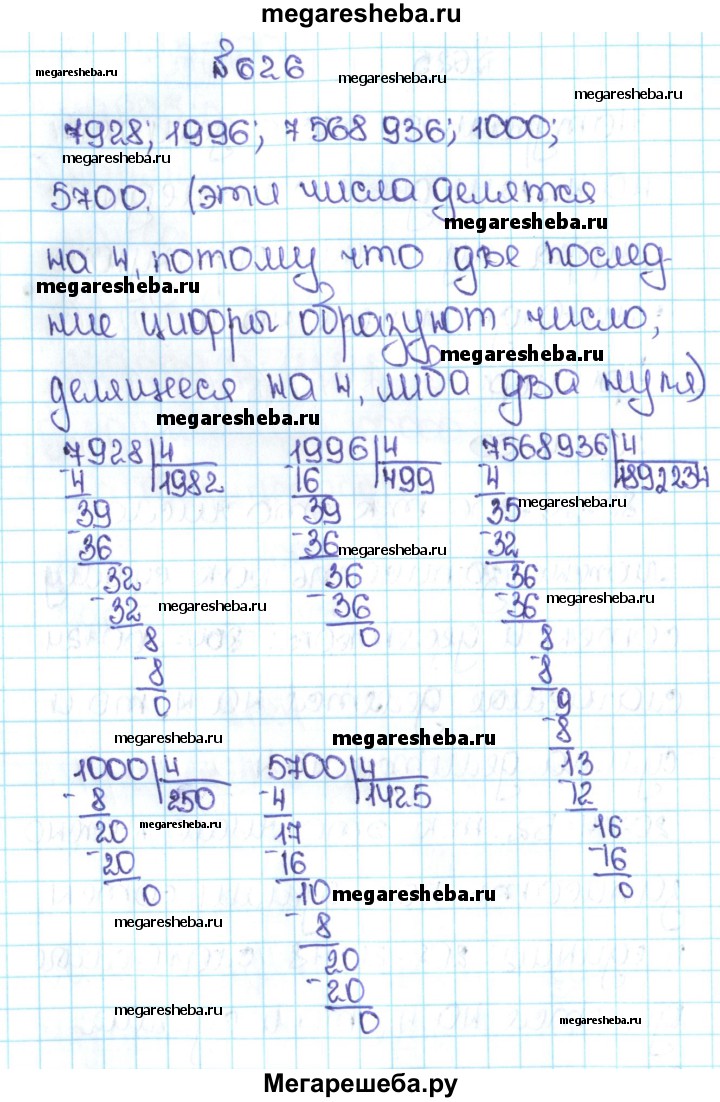 megaresheba.ru
№626
megaresheba.ru megaresheba.ru megaresheba.ru
7928; 1996; 7 568 936; 1000;
megaresheba.ru
5700. (эти числа делятся
megaresheba.ru
на 4, потому что две послед-
megaresheba.ru
ние цифры образуют число,
megaresheba.ru
делящееся на 4, либо два нуля)
megaresheba.ru
7928 4 1996 4 7568936 4
-4 1982 -16 499 -4 1892234
megaresheba.ru
39 39 35
-36 -36 -32
megaresheba.ru
32 36 36
-32 -36 -36
megaresheba.ru megaresheba.ru
8 0 8
-8 -8
0 9
-8
megaresheba.ru megaresheba.ru
1000 4 5700 4 13
-8 250 -4 1425 -12
20 17 16
megaresheba.ru
-20 -16 -16
0 10 0
megaresheba.ru
-8
megaresheba.ru
20
-20
0
megaresheba.ru megaresheba.ru
Мегарешеба.ру